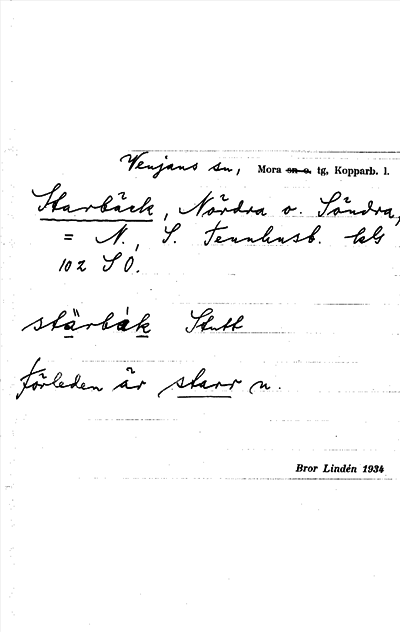 Wenjans sn, Mora sn o. tg, Kopparb. l.
Starbäck, Nördra o. Söndra,
= N., S. Tennhusb. kbl
102 SO.
stärbäk Stutt
Förleden är starr n.
Bror Lindén 1934